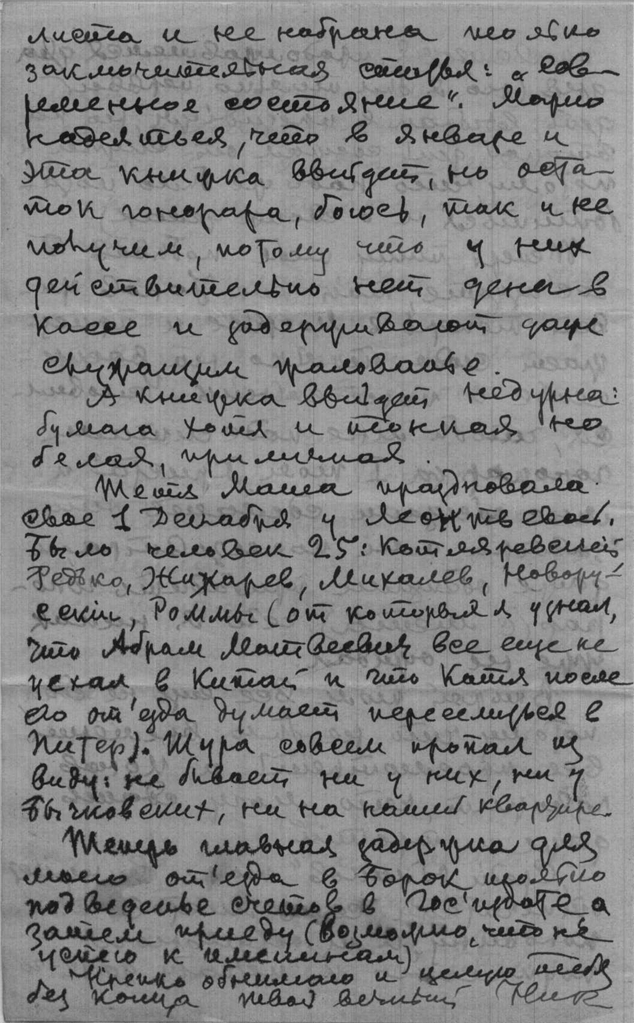 листа и не набрана только
заключительная статья: „Сов-
ременное состояние“. Можно
надеяться, что в январе и
эта книжка выйдет, но оста-
ток гонорара, боюсь, так и не
получим, потому что у них
действительно нет денег в
кассе и задерживают даже
служащим жалованье.
А книжка выйдет недурна:
бумага хотя и тонкая но
белая, приличная
Тетя Маша праздновала
свое 1 Декабря у
Было человек 25: Котляревский
Редько, Жихарев, Михалев, Новору-
сский, Роммы (от которых я узнал,
что Абрам Матвеевич все еще не
уехал в Китай и что Катя после
его от'езда думает переселиться в
Питер). Шура совсем пропал из
виду: не бывает ни у них, ни у
Бычковских, ни на нашей квартире.
Теперь главная задержка для
моего от'езда в Борок только
подведенье счетов в Гос'издате, а
затем приеду (возможно, что не
успею к именинам)
Крепко обнимаю и целую тебя
без конца твой вечный Ник